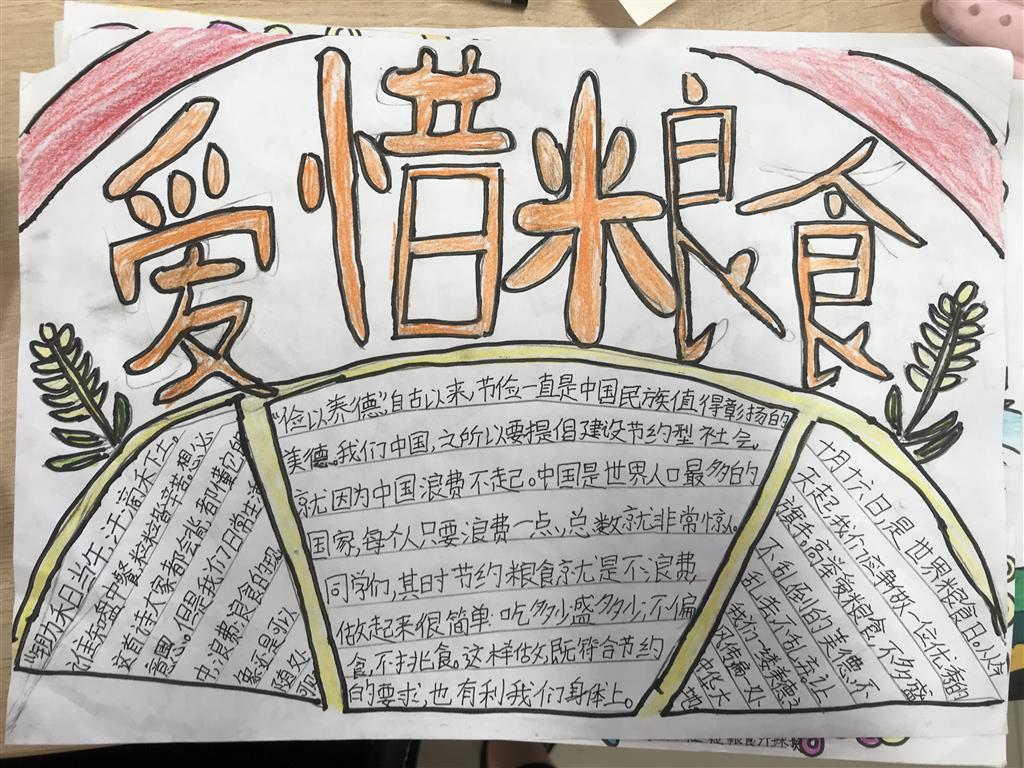 爱惜粮食
锄禾日当午,汗滴禾下土。
谁知盘中餐粒粒皆辛苦。想必
这首诗大家都会背,都懂它的
意思。但是我们日常生活
中浪费粮食的现
象还是可以
随处
可
“俭以养德”,自古以来,节俭一直是中国民族值得彰扬的
美德。我们中国,之所以要提倡建设节约型社会,
就因为中国浪费不起。中国是世界人口最多的
国家,每个人只要浪费一点、总数就非常惊人。
同学们,其时节约粮食就是不浪费,
做起来很简单:吃多少盛多少;不偏
食,不挑食。这样做,既符合节约
的要求,也有利我们身体上。
十月十六日是世界粮食日。从今
天起我们应争做一位优秀的
旗手,高举爱粮食,不多盛
不乱倒的美德,不
乱丢不乱充让
我们一缕美德
风传遍
中华大
地